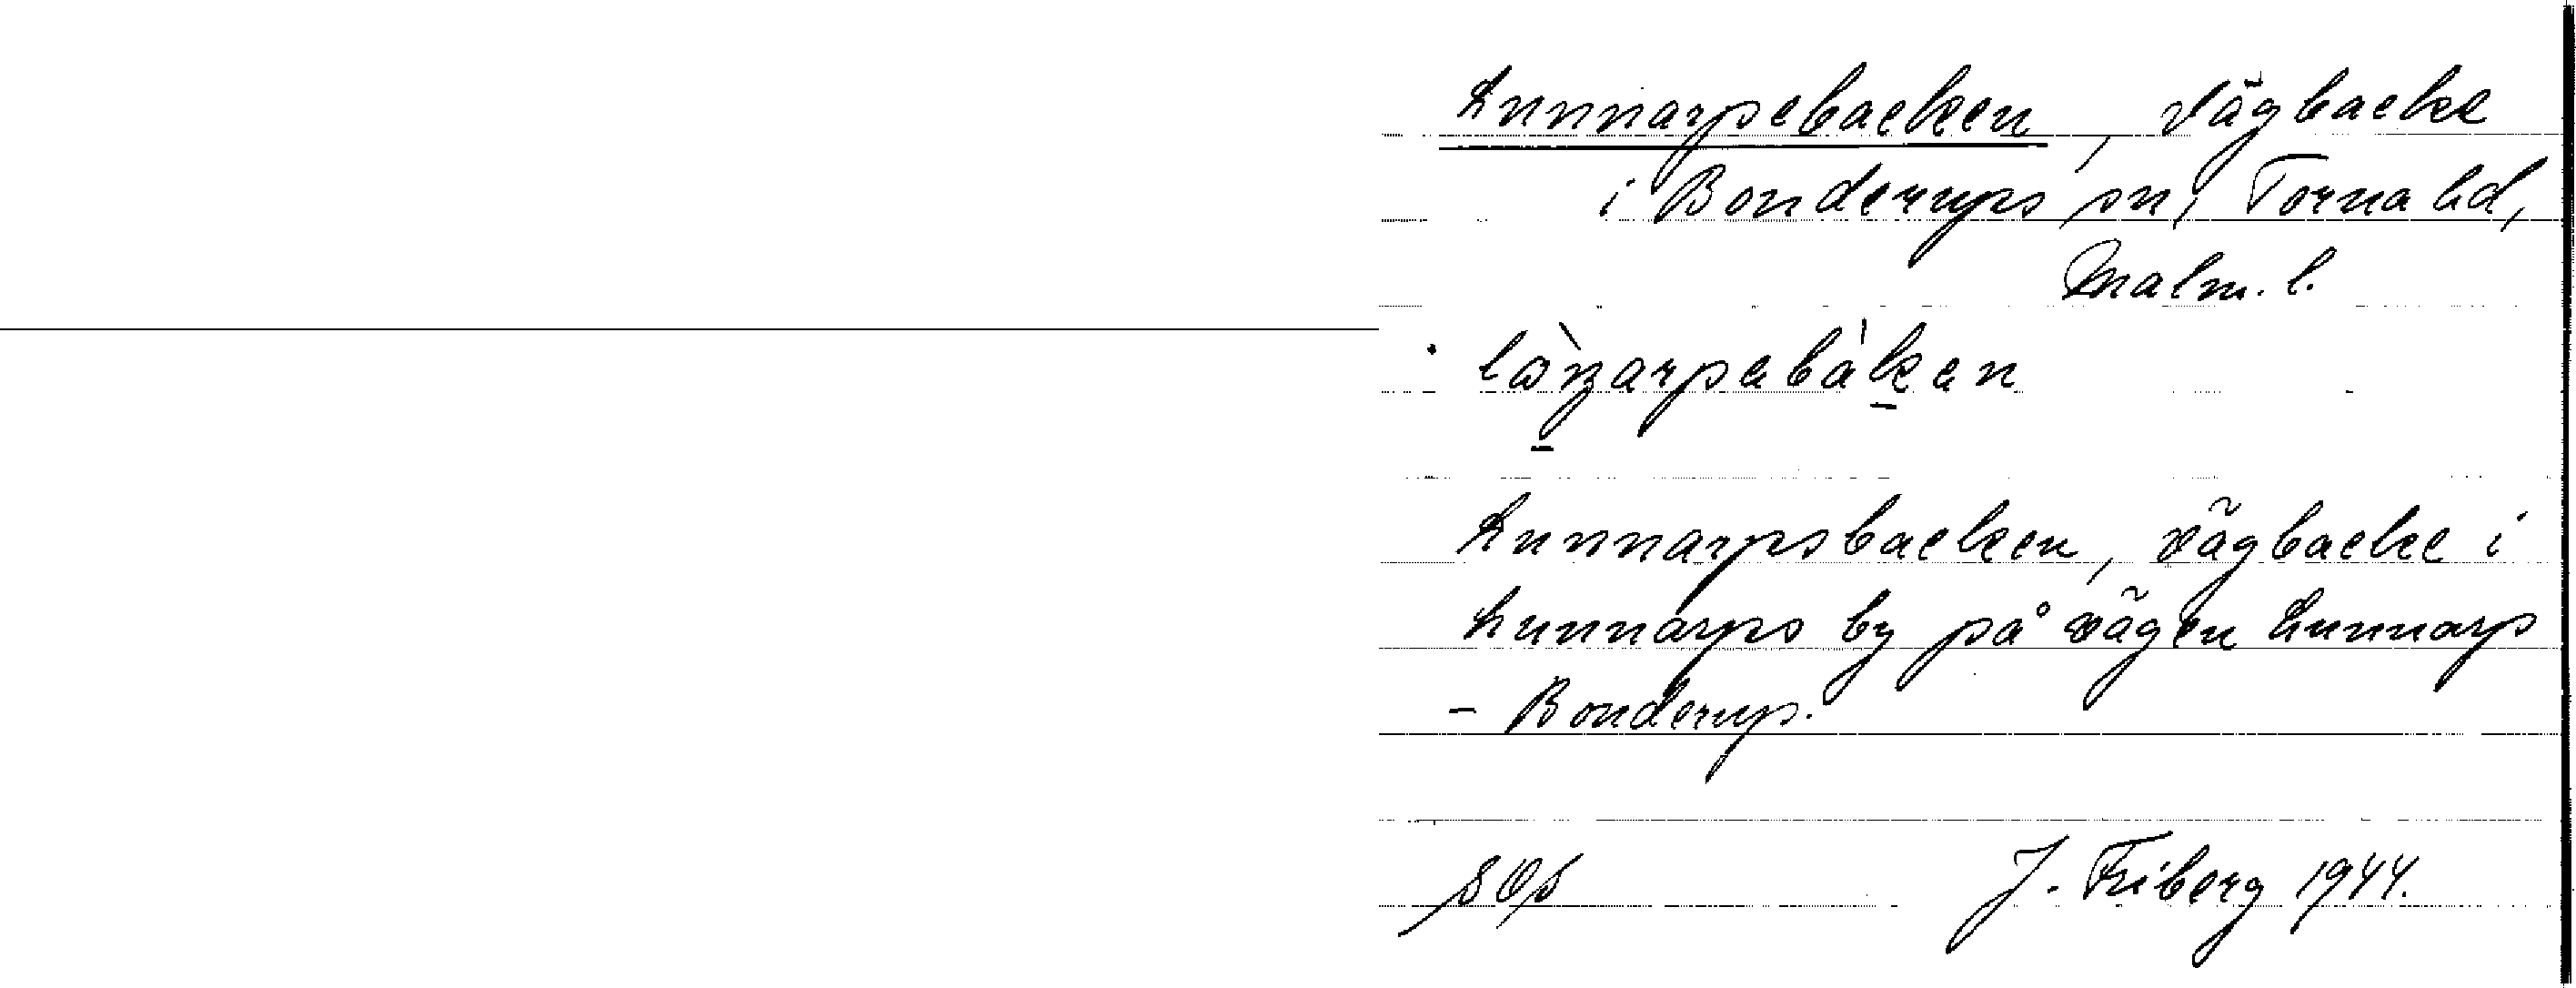 Lunnarpebacken, vägbacke
i Bonderups sn, Torna hd,
Malm. l.
Lunnarpsbacken, vägbacke i
Lunnarps by på vägen Lunnarp
- Bonderup.
J. Friberg 1944.